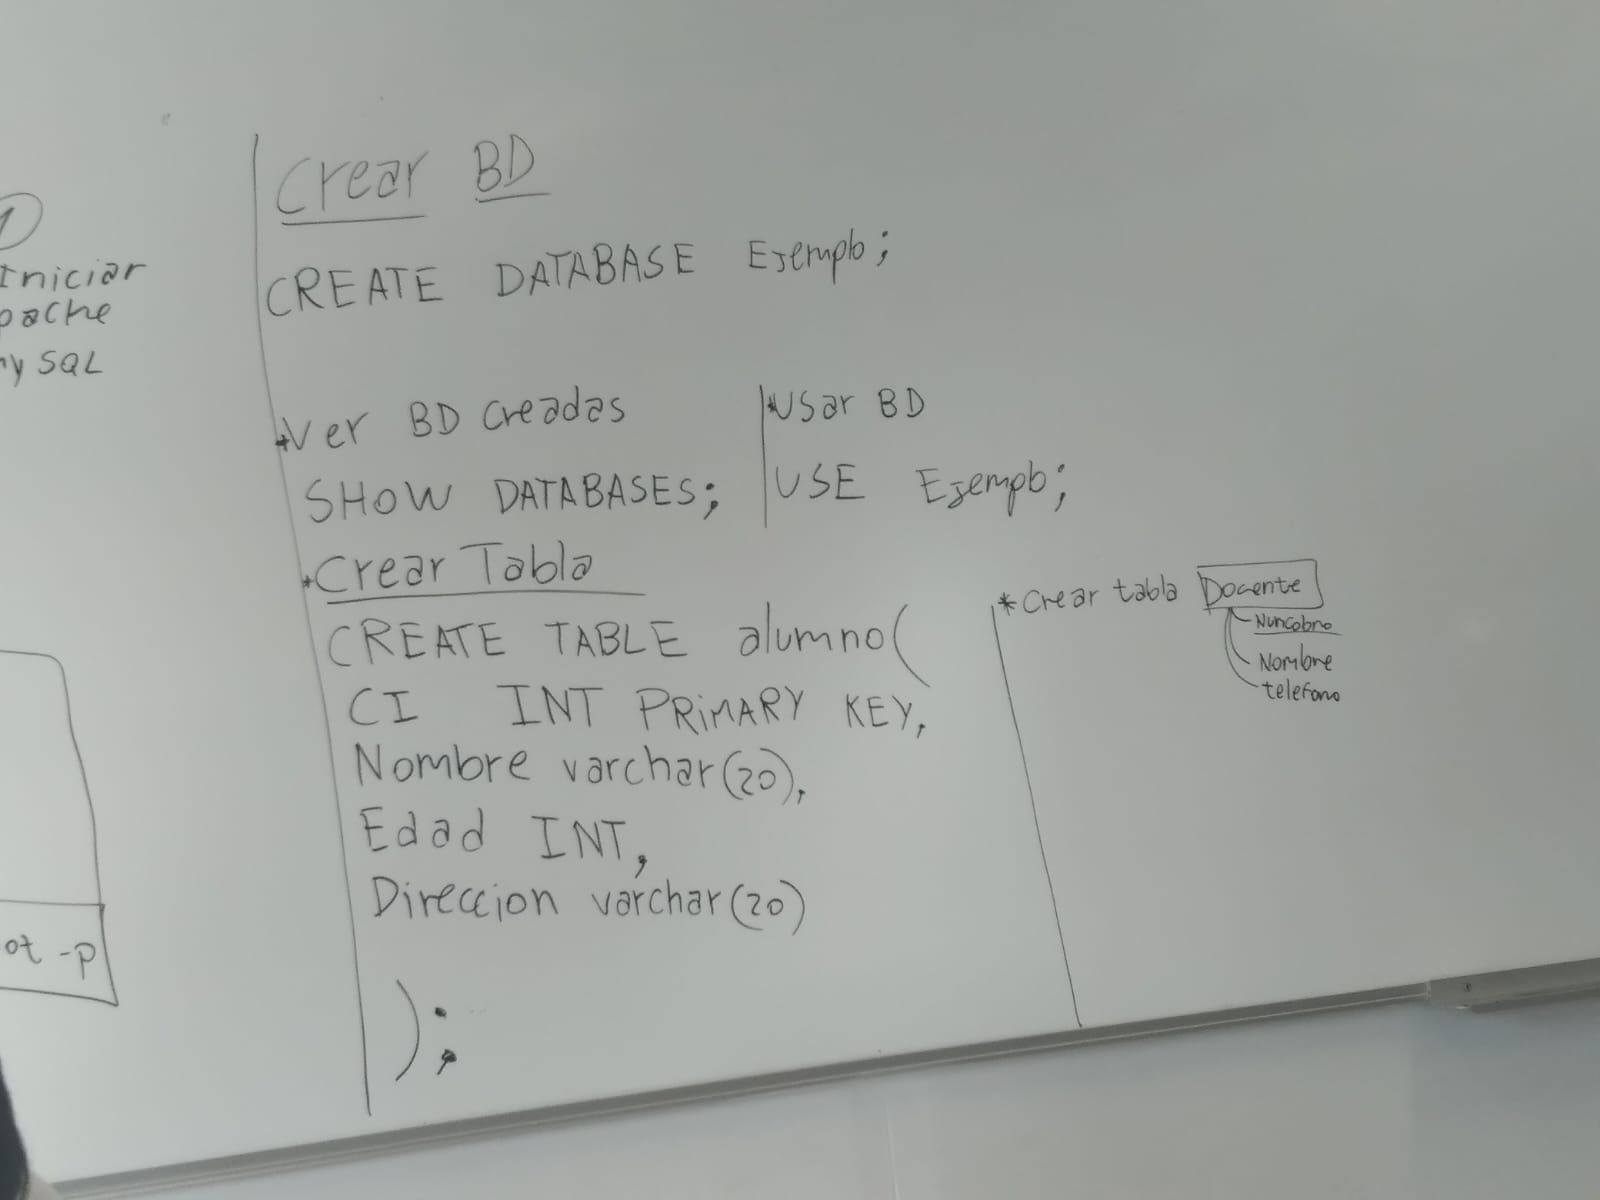 1
Iniciar
pache
my SQL
ot -p
Crear BD
CREATE DATABASE Ejemplo;
*Ver BD Creadas
SHOW DATABASES;
*Usar BD
USE Ejemplo;
*Crear Tabla
CREATE TABLE alumno(
CI INT PRiMARY KEY,
Nombre varchar(20),
Edad INT,
Direccion varchar(20)
);
*Crear tabla Docente
Nombre
telefono